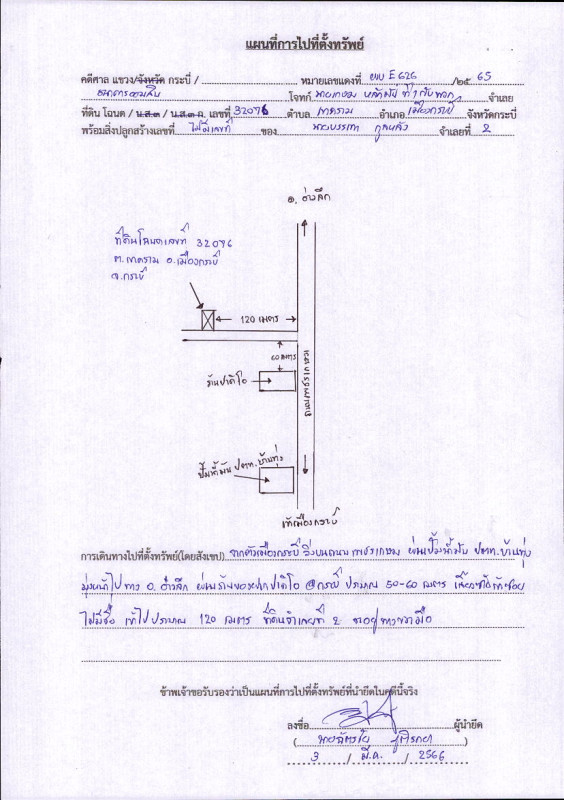 แผนที่การไปที่ตั้งทรัพย์
คดีศาล แขวง/จังหวัด กระบี่ / หมายเลขแดงที่ ผบ E 626 /๒๕ 65
ธนาคารออมสิน โจทก์ ที่ 1 กับพวก จำเลย
ที่ดิน โฉนด / น.ส.๓ / น.ส.๓ ก. เลขที่ 32096 ตำบล เขาคราม อำเภอ เมืองกระบี่ จังหวัดกระบี่
พร้อมสิ่งปลูกสร้างเลขที่ ไม่มีเลขที่ ของ นายบรรเทา จำเลยที่ 2
อ. อ่าวลึก
ที่ดินโฉนดเลขที่ 32096
ต. เขาคราม อ.เมืองกระบี่
จ.กระบี่
120 เมตร
60 เมตร
ถนนเพชรเกษม
ร้านปาติโอ
ปั๊มน้ำมัน ปตท. บ้านทุ่ง
เข้าเมืองกระบี่
การเดินทางไปที่ตั้งทรัพย์(โดยสังเขป) จากตัวเมืองกระบี่ วิ่งบนถนนเพชรเกษม ผ่านปั๊มน้ำมัน ปตท.บ้านทุ่ง
มุ่งหน้าไปทาง อ. อ่าวลึก ผ่านร้านของฝากปาติโอ @กระบี่ ประมาณ 50-60 เมตร เลี้ยวซ้ายเข้าซอย
ไม่มีชื่อ เข้าไปประมาณ 120 เมตร ที่ดินจำเลยที่ 2 จะอยู่ทางขวามือ
ข้าพเจ้าขอรับรองว่าเป็นแผนที่การไปที่ตั้งทรัพย์ที่นำยึดในคดีนี้จริง
ลงชื่อ ผู้นำยึด
( นายฉัตรชัย )
3 / มี.ค. / 2566